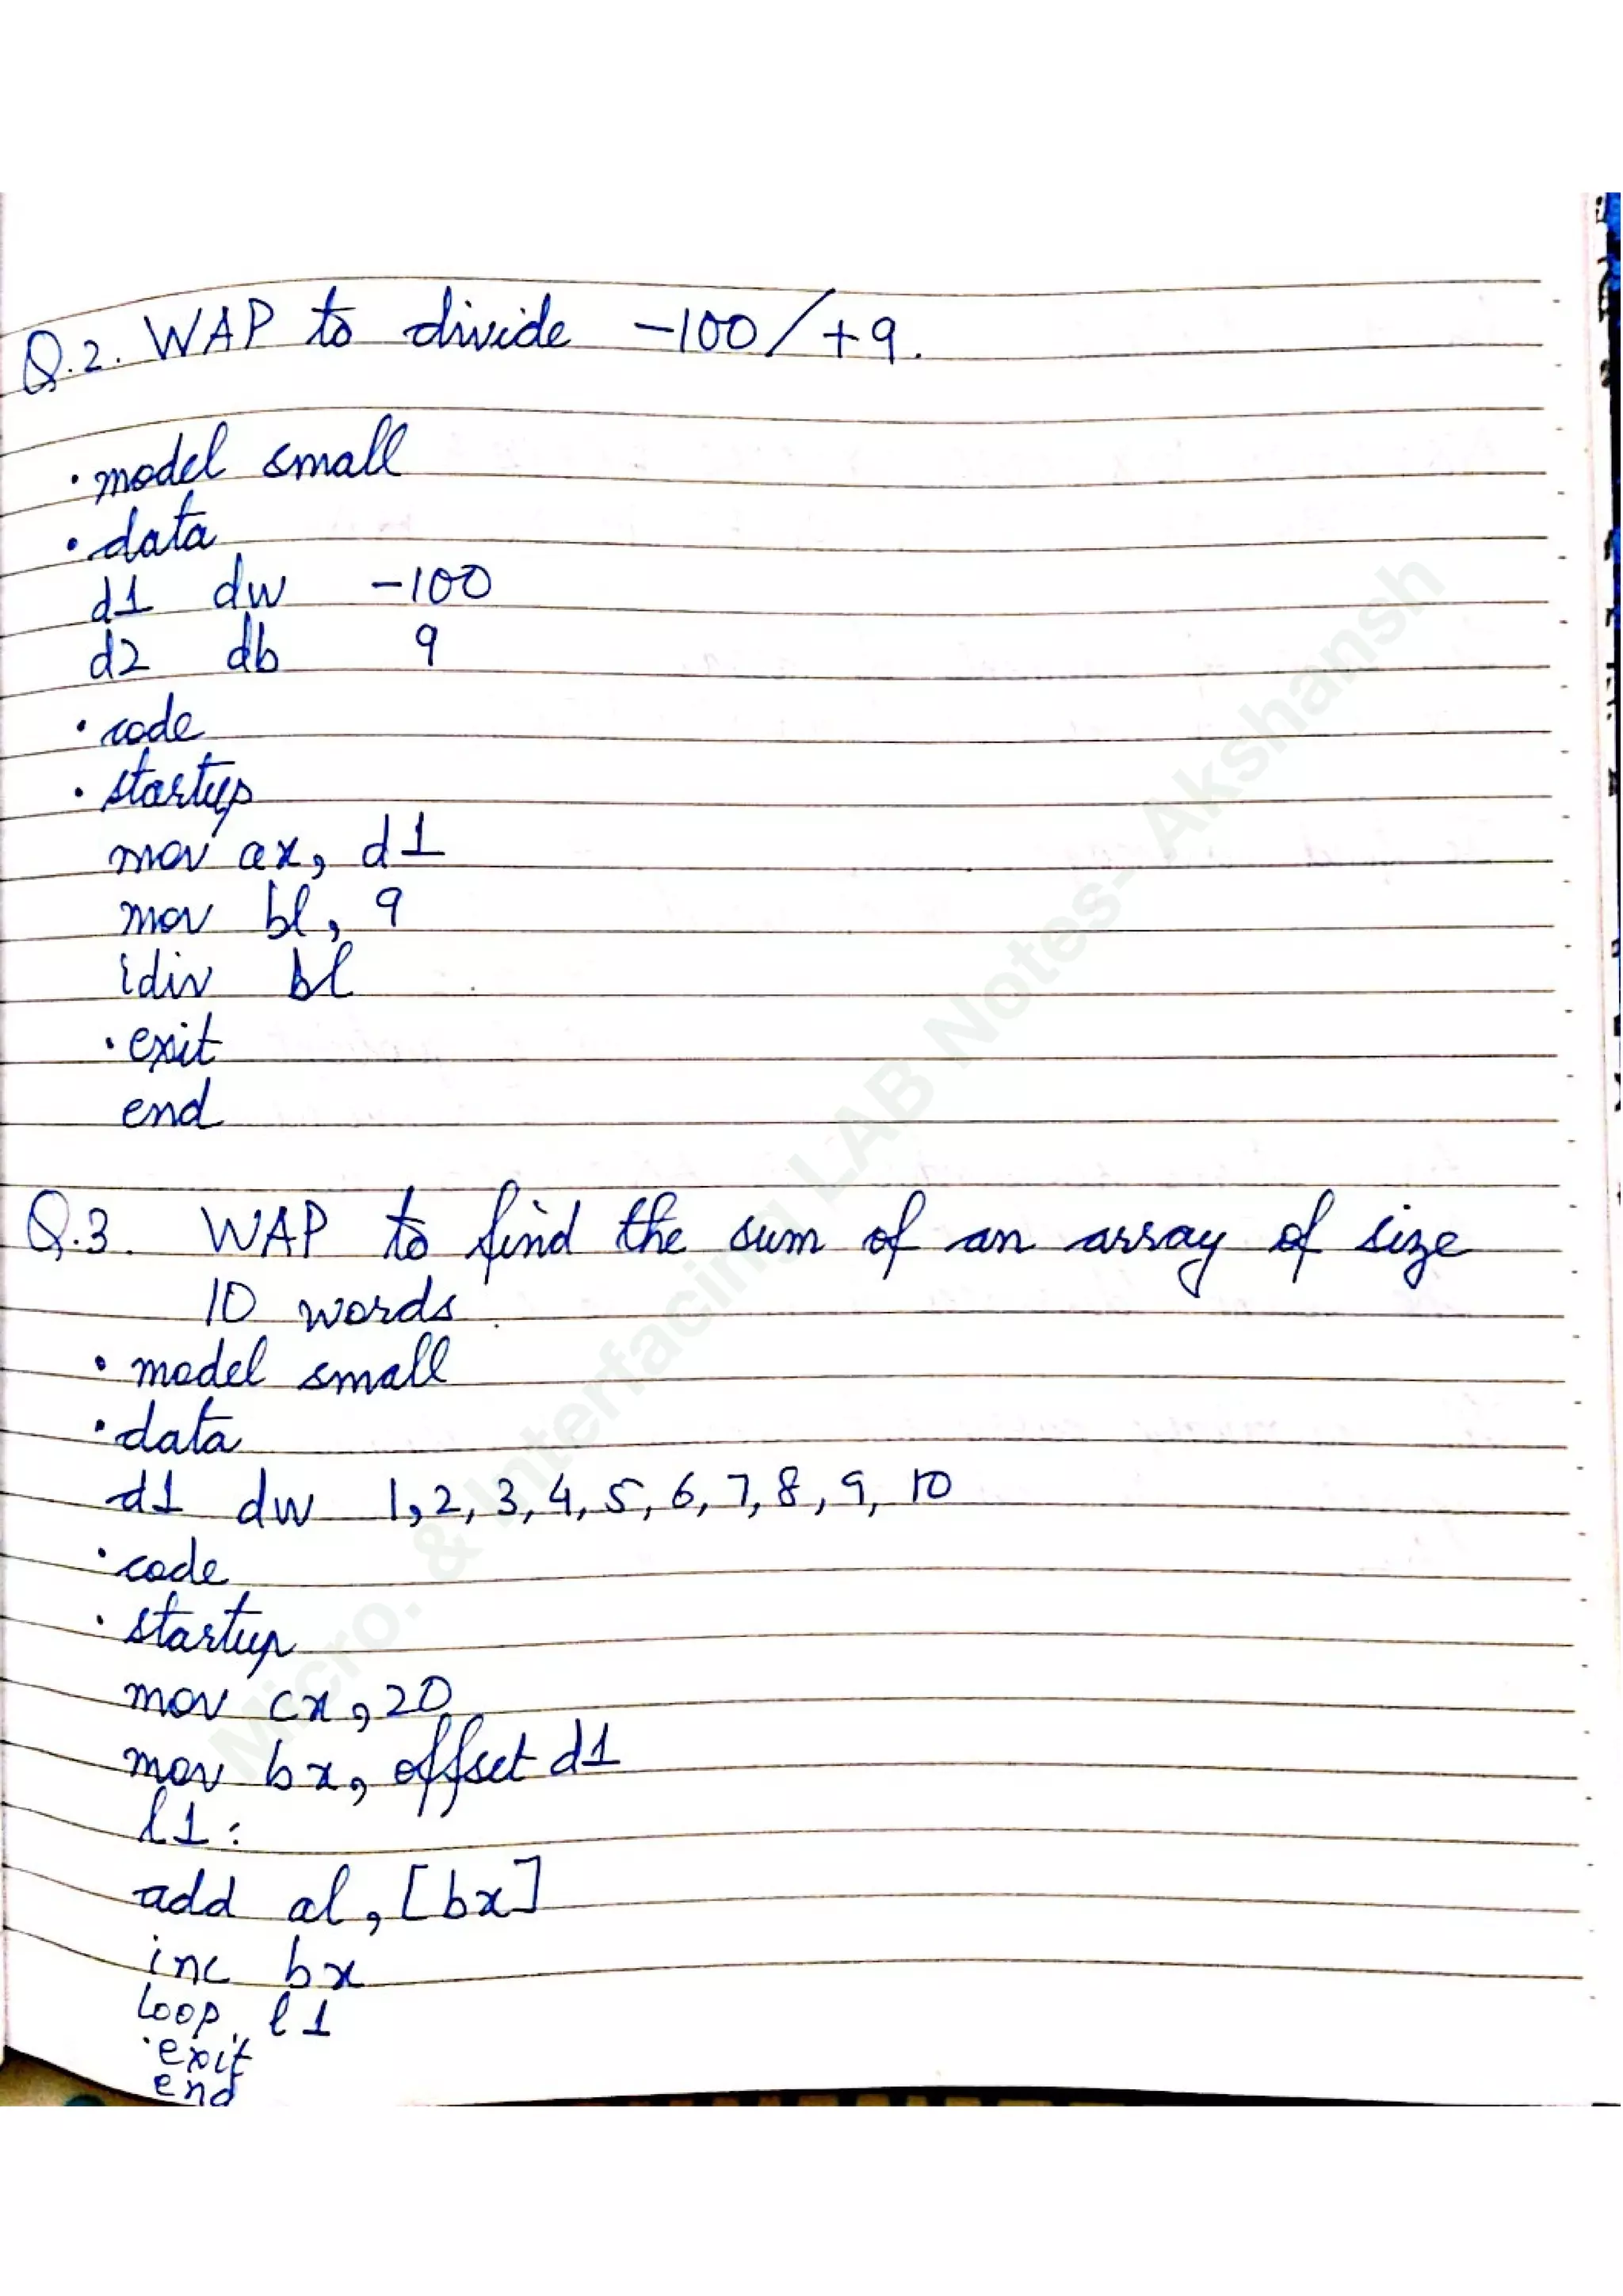 Q.2. WAP to divide -100/+9.
.model small
.data
d1 dw -100
d2 db 9
.code
.startup
mov ax, d1
mov bl, 9
idiv bl
.exit
end
Q.3. WAP to find the sum of an array of size
10 words.
.model small
.data
d1 dw 1,2,3,4,5,6,7,8,9,10
.code
.startup
mov cx, 20
mov bx, offset d1
l1:
add al, [bx]
inc bx
loop l1
.exit
end
Micro. & Interfacing LAB Notes- Akshansh